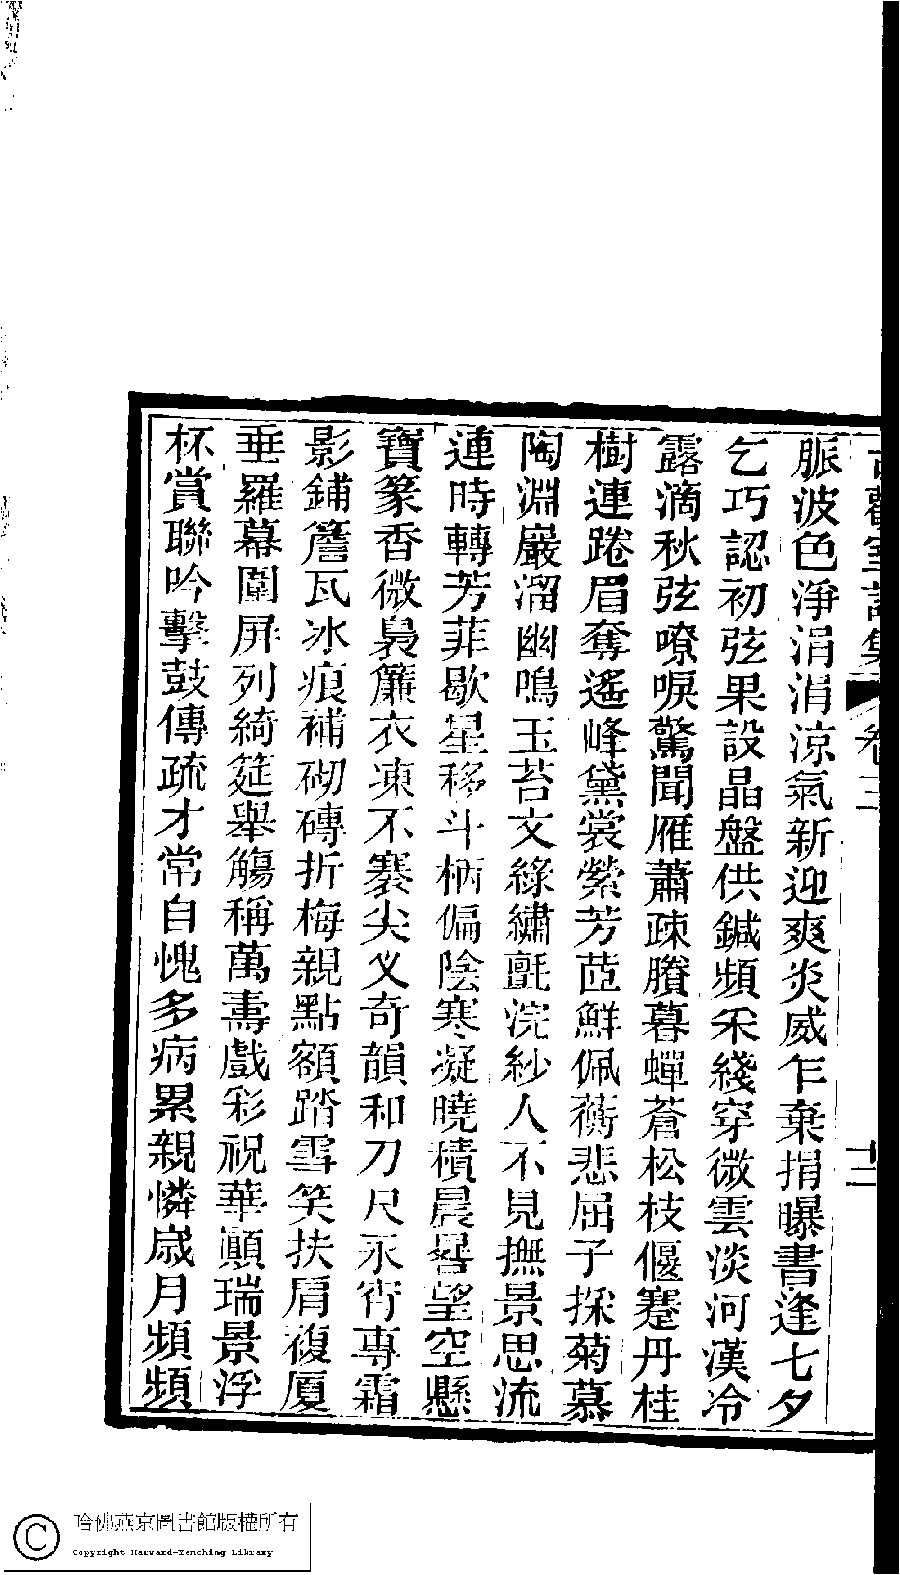 詩集 卷三 十二
脈波色淨涓涓涼氣新迎爽炎威乍棄捐曝書逢七夕
乞巧認初弦果設晶盤供鍼頻禾綫穿微雲淡河漢冷
露滴秋弦嘹唳驚聞雁蕭疎賸暮蟬蒼松枝偃蹇丹桂
樹連蜷眉奪遙峰黛裳縈芳茝鮮佩蘅悲屈子採菊慕
陶淵巖溜幽鳴玉苔文綠繡氈浣紗人不見撫景思流
連時轉芳菲歇星移斗柄偏陰寒凝曉積晨晷望空懸
寶篆香微裊簾衣凍不褰尖叉奇韻和刀尺永宵專霜
影鋪簷瓦冰痕補砌磚折梅親點額踏雪笑扶肩複厦
垂羅幕圍屏列綺筵舉觴稱萬壽戲彩祝華顛瑞景浮
杯賞聯吟擊鼓傳疏才常自愧多病累親憐歲月頻頻
哈佛燕京圖書館版權所有
Copyright Harvard-Yenching Library